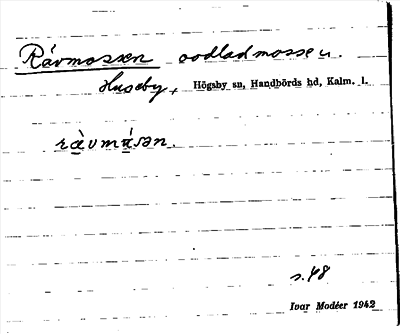 Rävmossen oodlad mosse u.
Huseby, Högsby sn, Handbörds hd, Kalm. l.
rä̀vmɷ́sən.
s. 48
Ivar Modéer 1942